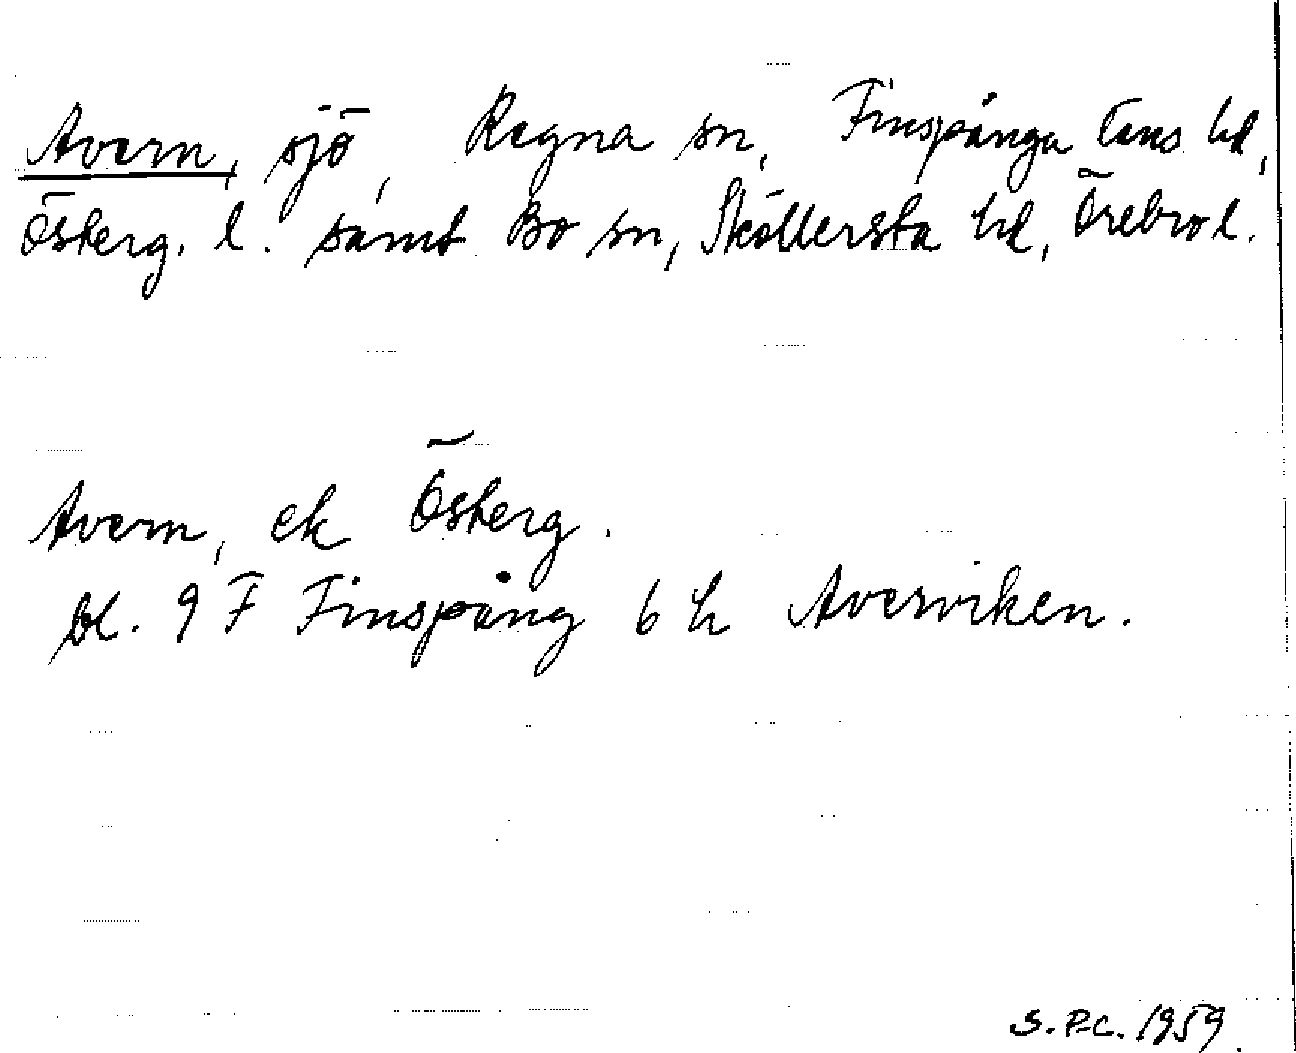 Avern, sjö, Regna sn, Finspånga läns hd,
Österg. l. samt Bo sn, Sköllersta hd, Örebro l.
Avern, ek Österg.
bl. 9 F Finspång 6 h Averviken.
S.P.C. 1959.